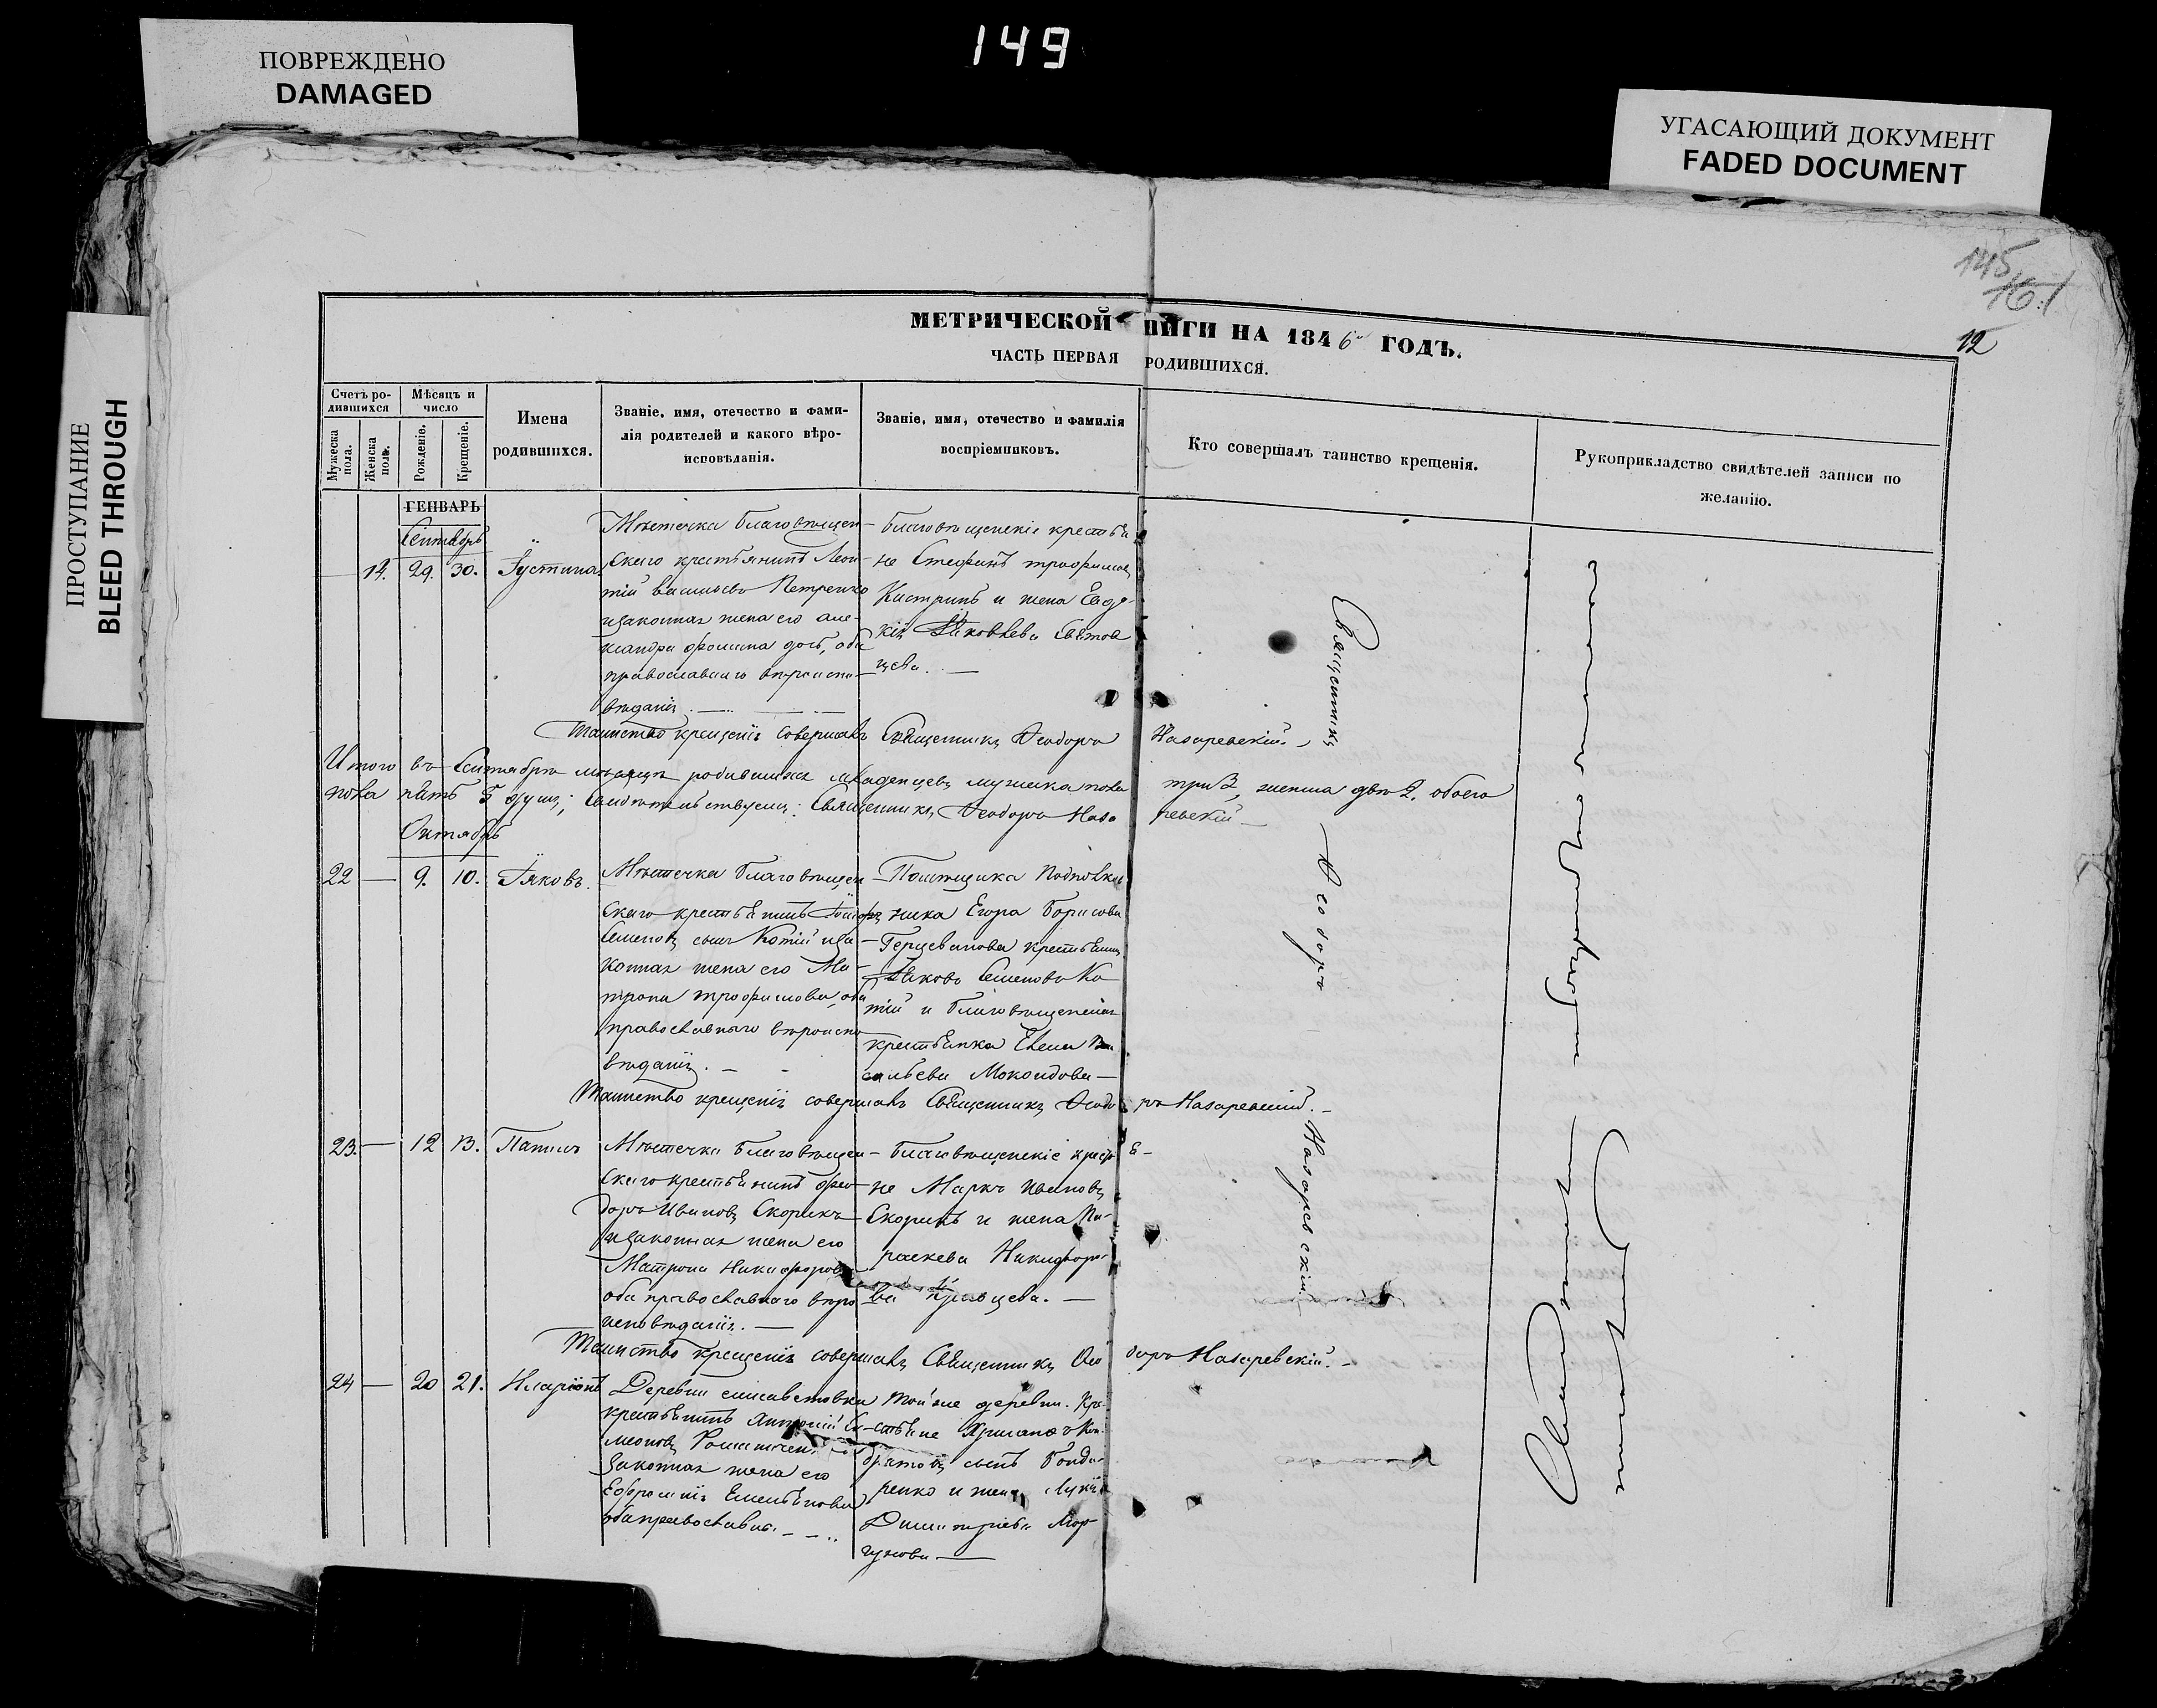 149
ПОВРЕЖДЕНО
DAMAGED
УГАСАЮЩИЙ ДОКУМЕНТ
FADED DOCUMENT
ПРОСТУПАНИЕ
BLEED THROUGH
145
12
МЕТРИЧЕСКОЙ НИГИ НА 1846 ГОДЪ.
ЧАСТЬ ПЕРВАЯ РОДИВШИХСЯ.
Счетъ ро-
дившихся
Мужеска
пола.
Женска
пола.
Мѣсяцъ и
число
Рожденіе.
Крещеніе.
Имена
родившихся.
Званіе, имя, отечество и фами-
лія родителей и какого вѣро-
исповѣданія.
Званіе, имя, отечество и фамилія
воспріемниковъ.
Кто совершалъ таинство крещенія.
Рукоприкладство свидѣтелей записи по
желанію.
ГЕНВАРЬ
Сентябрь
14. 29. 30. Іустина
Мѣстечка благовѣщен-
скаго крестьянинъ Леон-
тій васильевъ Петренко
изаконная жена его але-
ксандра фомина дочь, оба
православнаго вѣроиспо-
вѣданія.
благовѣщенскіе крестья
не Стефанъ трофимовъ
Кистринъ и жена Евдо-
кія Яковлева Святов
цева.
Таинство крещенія совершалъ Священникъ Феодоръ Назаревскій
Итого въ Сентябрѣ мѣсяцѣ родившихся младенцевъ мужеска пола три 3, женска двѣ 2. обоего
пола пять 5 душъ; Свидѣтельствуемъ: Священникъ Феодоръ Наза ревскій
Октябрь
22 — 9. 10. Іаковъ.
Мѣстечка благовѣщен
скаго крестьянинъ Іосифъ
Семеновъ сынъ Котій иза-
конная жена его Ма-
трона трофимова, оба
православнаго вѣроиспо
вѣданія.
Помѣщика Подполков
ника Егора Борисова
Герсеванова крестьянинъ
Яковъ Семеновъ Ко
тій и благовѣщенская
крестьянка Елена Ва
сильева Мокоидова
Таинство крещенія совершалъ Священникъ Феодо ръ Назаревскій.
23. — 12 13. Патапъ
Мѣстечка благовѣщен-
скаго крестьянинъ фео-
доръ Ивановъ Скорикъ
изаконная жена его
Матрона Никифорова
оба православнаго вѣро
исповѣданія.
благовѣщенскіе кресть
не Маркъ Ивановъ
Скорикъ и жена Па-
раскева Никифоро-
ва
Таинство крещенія совершалъ Священникъ Фео доръ Назаревскій.
24 — 20 21. Иларіонъ
Деревни елисаветовки
крестьянинъ Антоній Си-
меоновъ
законная жена его
Ефросинія Емельянова
оба православн.
Той же деревни Кре-
стьяне Кон-
дратовъ сынъ Бонда-
ренко и жена Лукія
Димитріева Мор
гунова
Священникъ
Феодоръ
Назаревскій